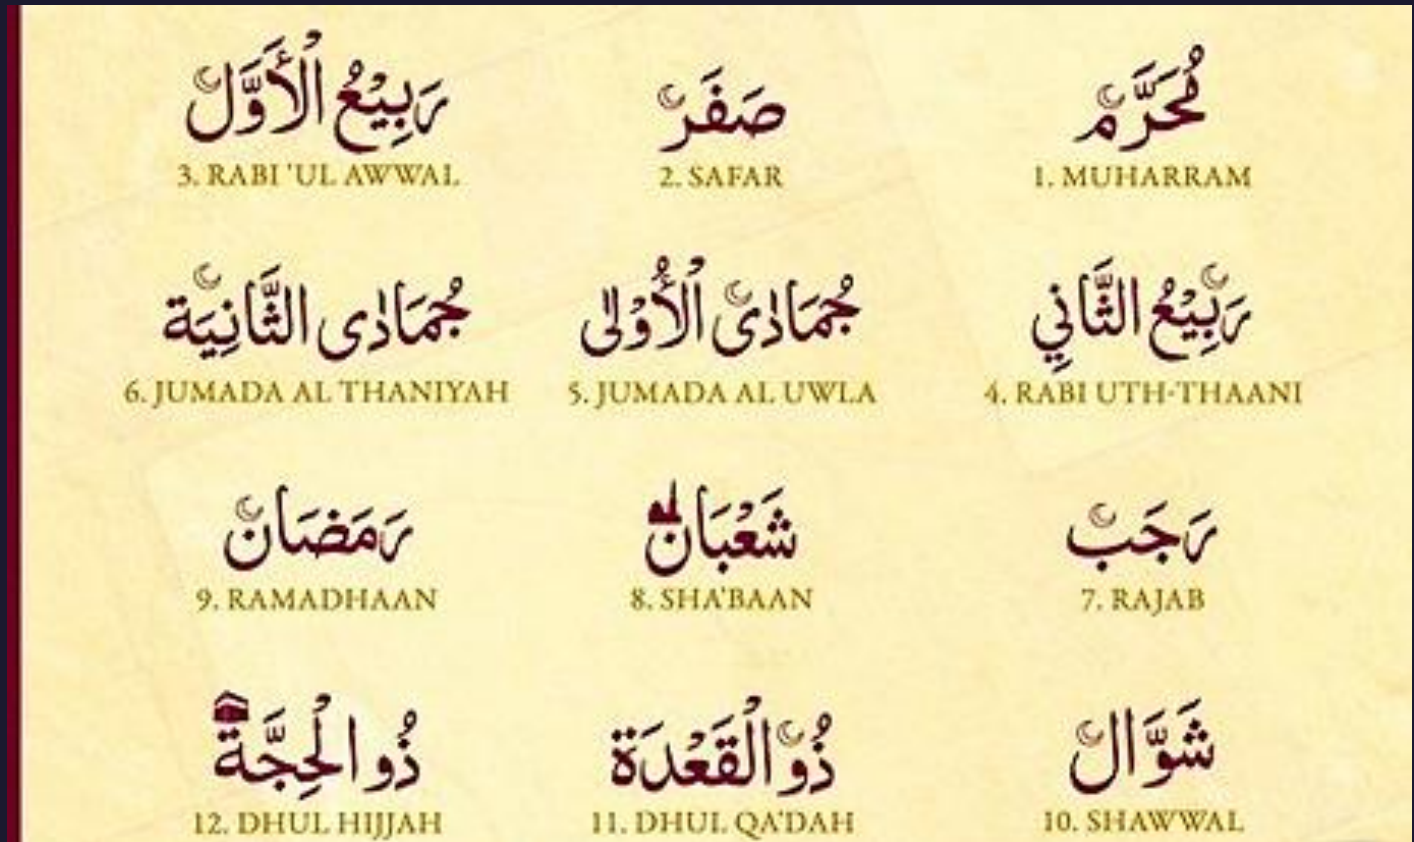 مُحَرَّم
1. MUHARRAM
صَفَر
2. SAFAR
رَبِيْعُ الْأَوَّل
3. RABI 'UL AWWAL
رَبِيْعُ الثَّانِي
4. RABI UTH-THAANI
جُمَادٰى الْأُوْلٰى
5. JUMADA AL UWLA
جُمَادٰى الثَّانِيَة
6. JUMADA AL THANIYAH
رَجَب
7. RAJAB
شَعْبَان
8. SHA'BAAN
رَمَضَان
9. RAMADHAAN
شَوَّال
10. SHAWWAL
ذُو الْقَعْدَة
11. DHUL QA'DAH
ذُو الْحِجَّة
12. DHUL HIJJAH